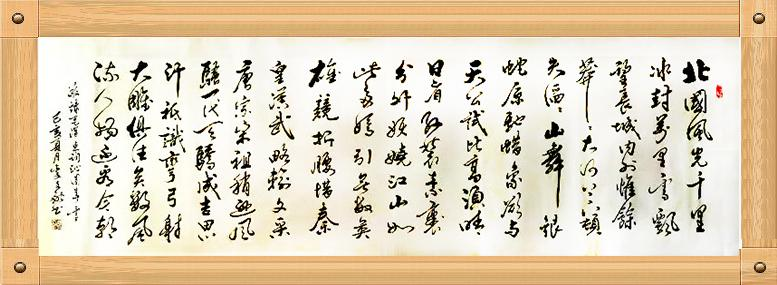 北國風光千里
冰封萬里雪飄
望長城内外惟餘
莽〻大河上下頓
失滔〻山舞銀
蛇原馳蠟象欲与
天公試比高須晴
日看紅裝素裹
分外妖嬈江山如
此多嬌引無數英
雄競折腰惜秦
皇漢武略輸文采
唐宗宋祖稍遜風
騷一代天驕成吉思
汗祗識彎弓射
大雕俱往矣數風
流人物還看今朝
詞沁園春雪
己亥夏月